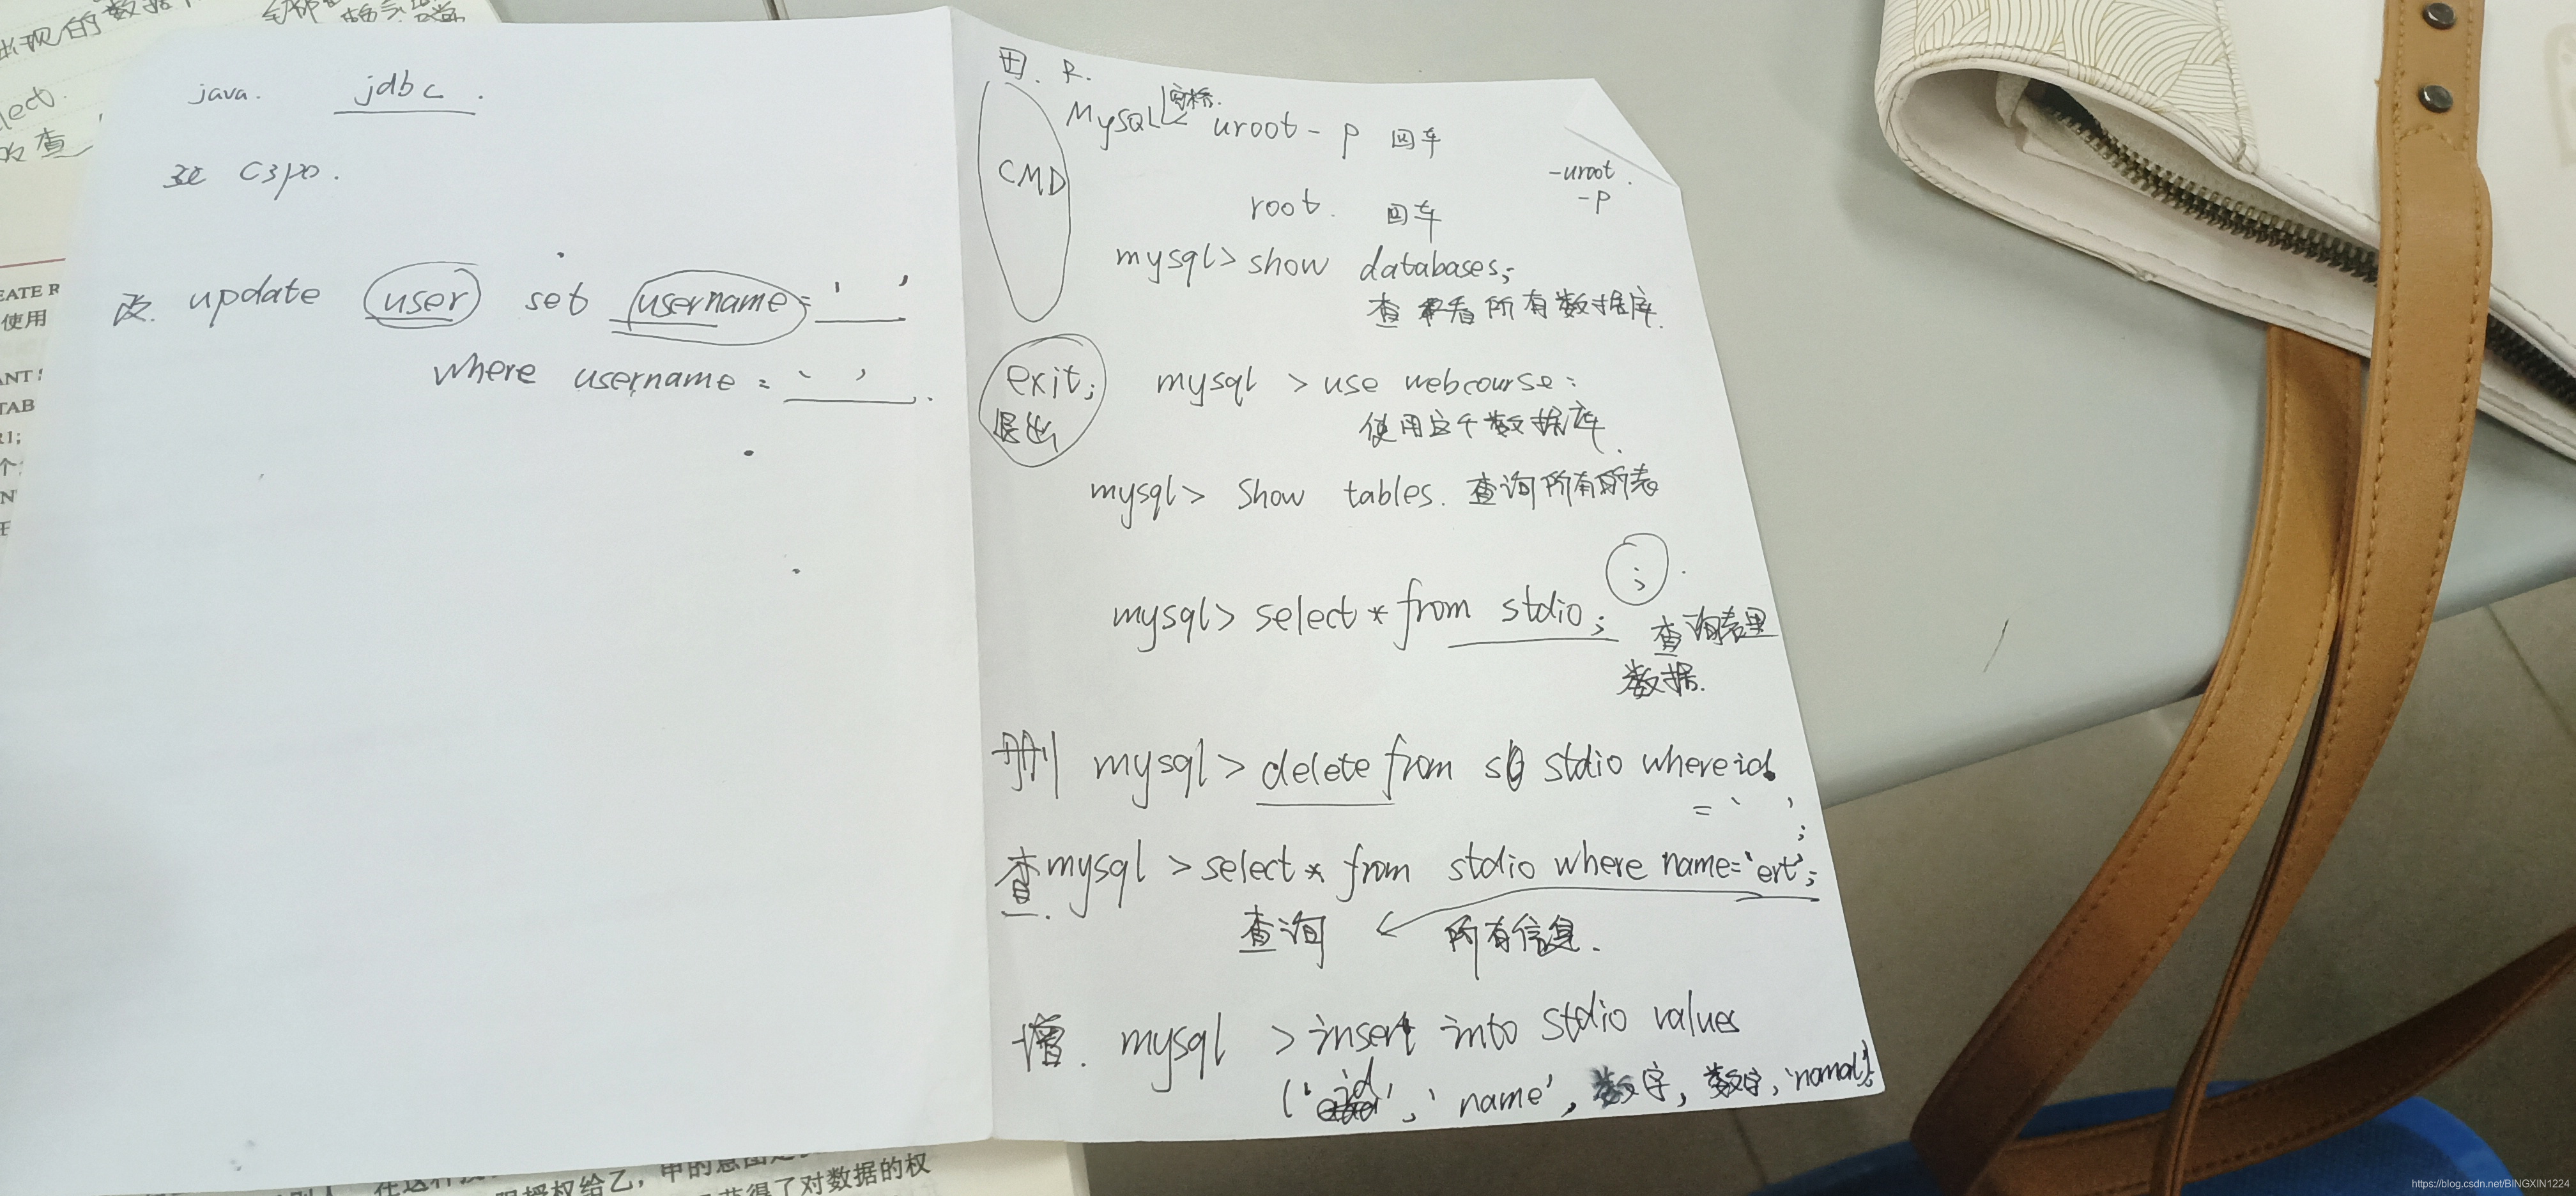 出现的数据
lect.
改查
EATE R
使用
ANT S
TAB
R1;
个
java. jdbc.
C3p0.
改. update user set username = ' '
where username = ' '.
田. R.
CMD
Mysql 空格. uroot - p 回车
-uroot.
-p
root. 回车
mysql> show databases;
查 看所有数据库.
exit;
退出
mysql > use webcourse:
使用这个数据库.
mysql> Show tables. 查询所有的表
;
mysql> select * from stdio; 查询表里
数据.
删 mysql> delete from stdio where id
= ' '
;
查. mysql > select * from stdio where name='ert';
查询 所有信息.
增. mysql > insert into stdio values
('id', 'name', 数字, 数字, 'nomal');
授权给乙,
得了对数据的权
https://blog.csdn.net/BINGXIN1224